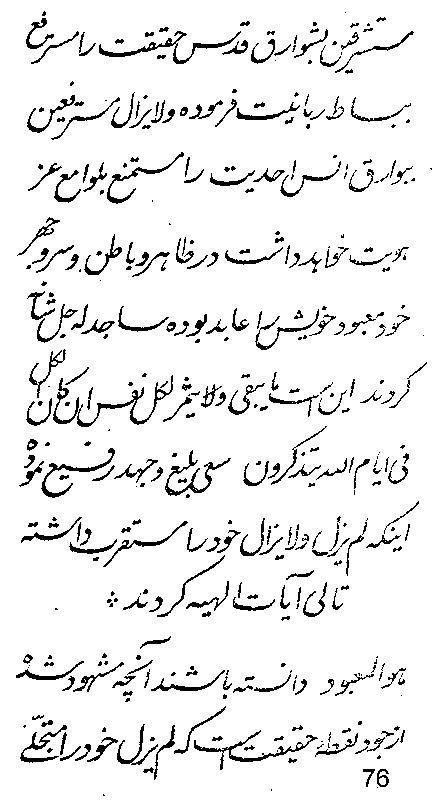 مستشرقین بشوارق قدس حقیقت را مسترفع
ببساط ربانیت فرموده ولایزال مسترفعین
ببوارق انس احدیت را مستمنع بلوامع عز
هویت خواهد داشت در ظاهر و باطن و سر و جهر
خود معبود خویش را عابد بوده ساجد له جل شأنه
کردند این است ما یبقی ولا یثمر لکل نفس ان کان الکل
فی ایام الله یتذکرون سعی بلیغ و جهد رفیع نموده
اینکه لم یزل ولا یزال خود را مستقرب داشته
تالی آیات الهیه کردند *
هو المعبود دانسته باشند آنچه مشهود شده
از جود نقطه حقیقت است که لم یزل خود را متجلی
76